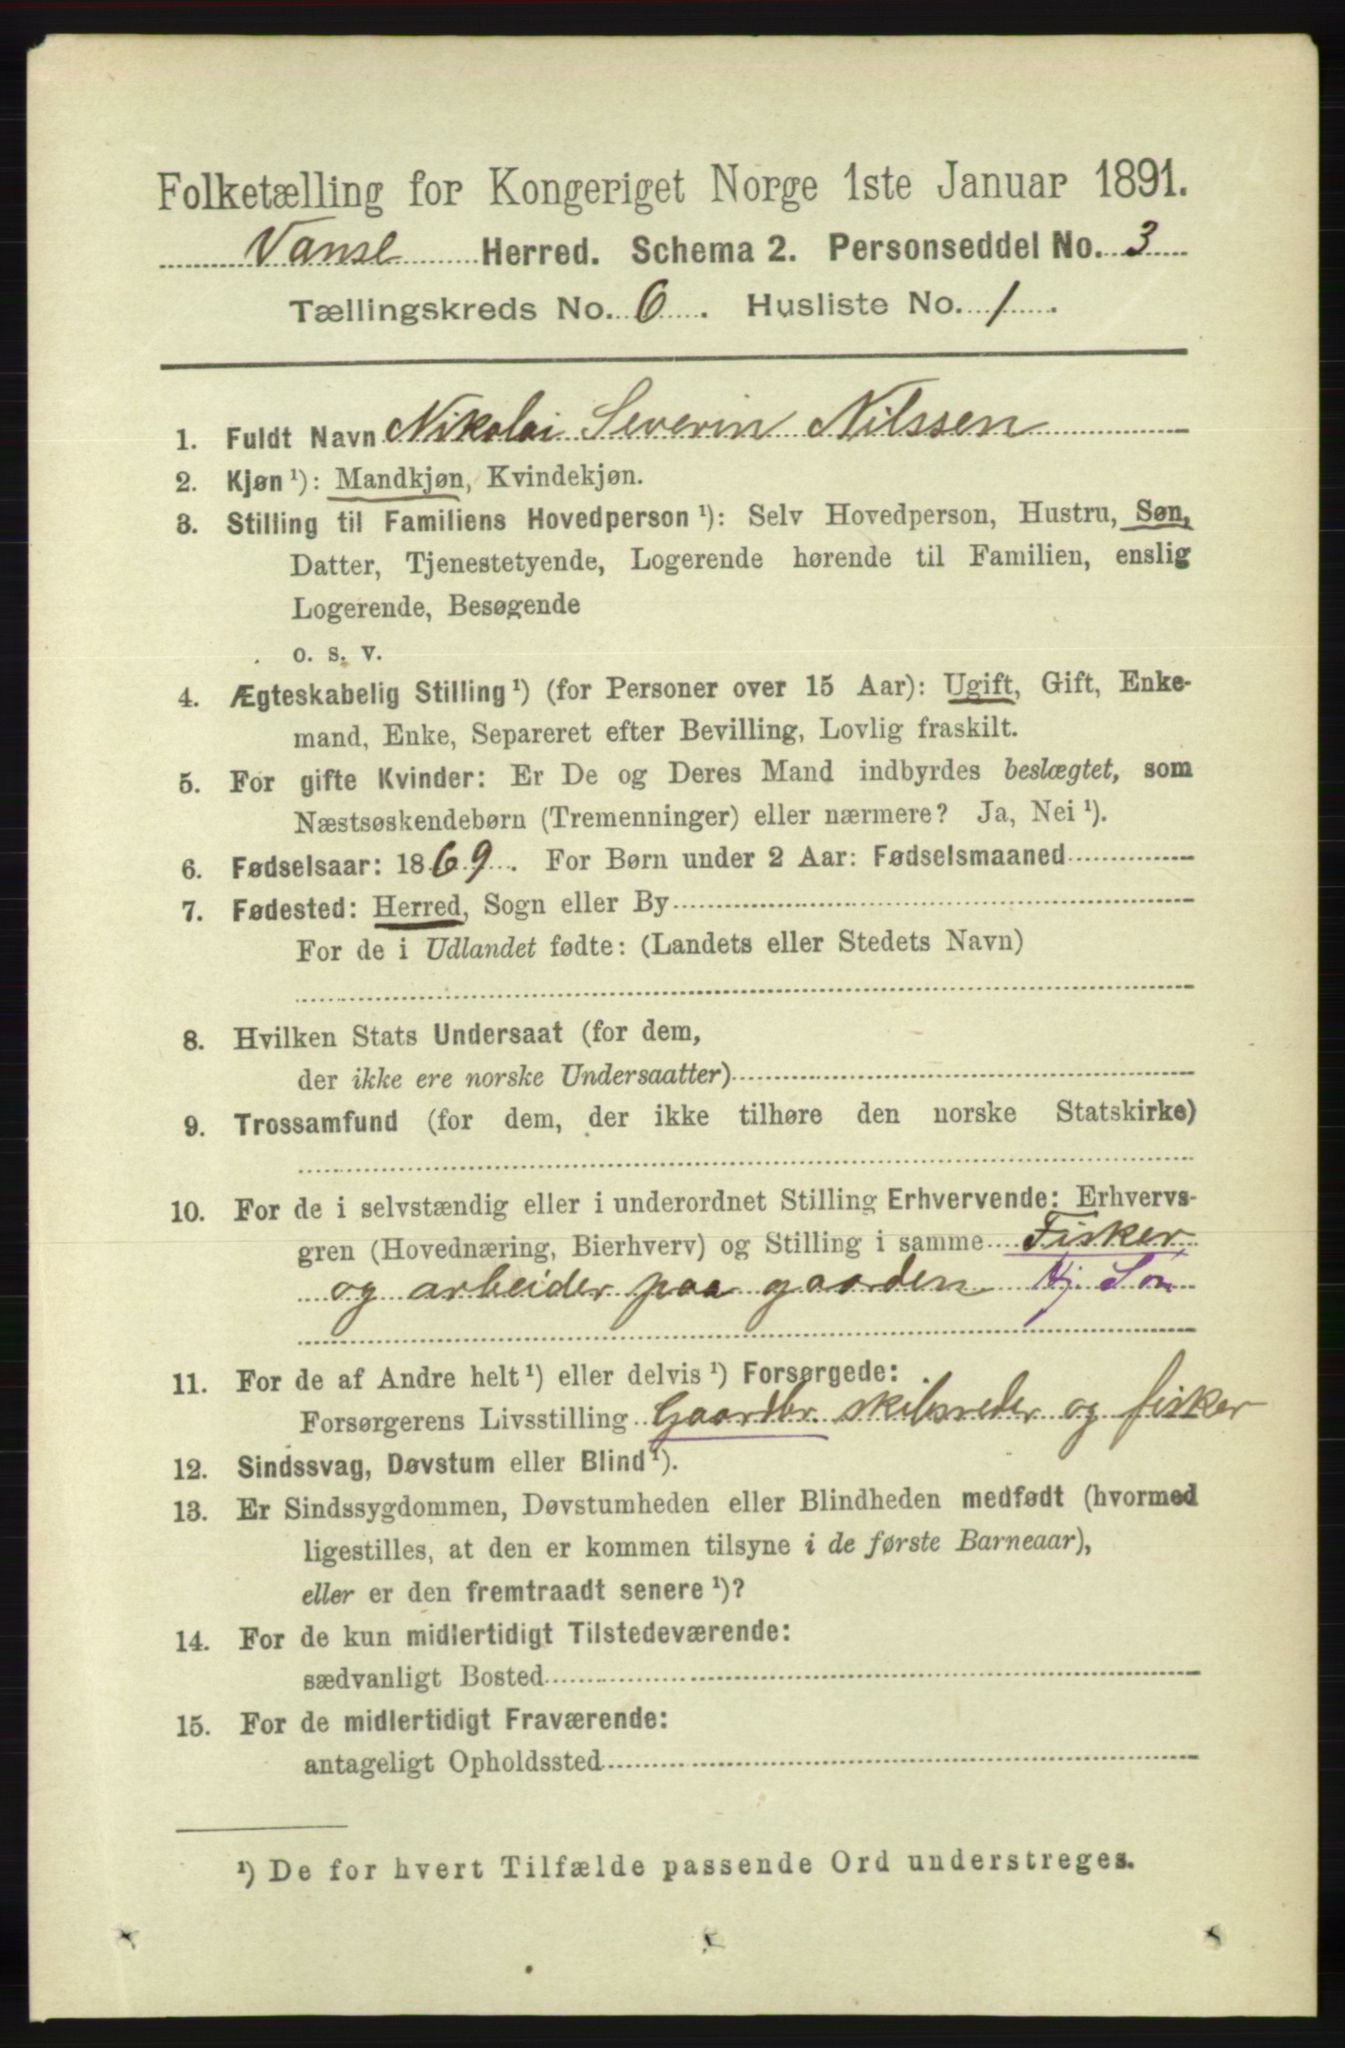 Folketælling for Kongeriget Norge 1ste Januar 1891.
Vanse Herred. Schema 2. Personseddel No. 3
Tællingskreds No. 6. Husliste No. 1.
1. Fuldt Navn Nikolai Severin Nilssen
2. Kjøn¹): Mandkjøn, Kvindekjøn.
3. Stilling til Familiens Hovedperson¹): Selv Hovedperson, Hustru, Søn,
Datter, Tjenestetyende, Logerende hørende til Familien, enslig
Logerende, Besøgende
o. s. v.
4. Ægteskabelig Stilling¹) (for Personer over 15 Aar): Ugift, Gift, Enke-
mand, Enke, Separeret efter Bevilling, Lovlig fraskilt.
5. For gifte Kvinder: Er De og Deres Mand indbyrdes beslægtet, som
Næstsøskendebørn (Tremenninger) eller nærmere? Ja, Nei¹).
6. Fødselsaar: 1869. For Børn under 2 Aar: Fødselsmaaned
7. Fødested: Herred, Sogn eller By
For de i Udlandet fødte: (Landets eller Stedets Navn)
8. Hvilken Stats Undersaat (for dem,
der ikke ere norske Undersaatter)
9. Trossamfund (for dem, der ikke tilhøre den norske Statskirke)
10. For de i selvstændig eller i underordnet Stilling Erhvervende: Erhvervs-
gren (Hovednæring, Bierhverv) og Stilling i samme Fisker
og arbeider paa gaarden Hj. Søn
11. For de af Andre helt¹) eller delvis¹) Forsørgede:
Forsørgerens Livsstilling Gaardbr. skibsreder og fisker
12. Sindssvag, Døvstum eller Blind¹).
13. Er Sindssygdommen, Døvstumheden eller Blindheden medfødt (hvormed
ligestilles, at den er kommen tilsyne i de første Barneaar),
eller er den fremtraadt senere¹)?
14. For de kun midlertidigt Tilstedeværende:
sædvanligt Bosted
15. For de midlertidigt Fraværende:
antageligt Opholdssted
¹) De for hvert Tilfælde passende Ord understreges.